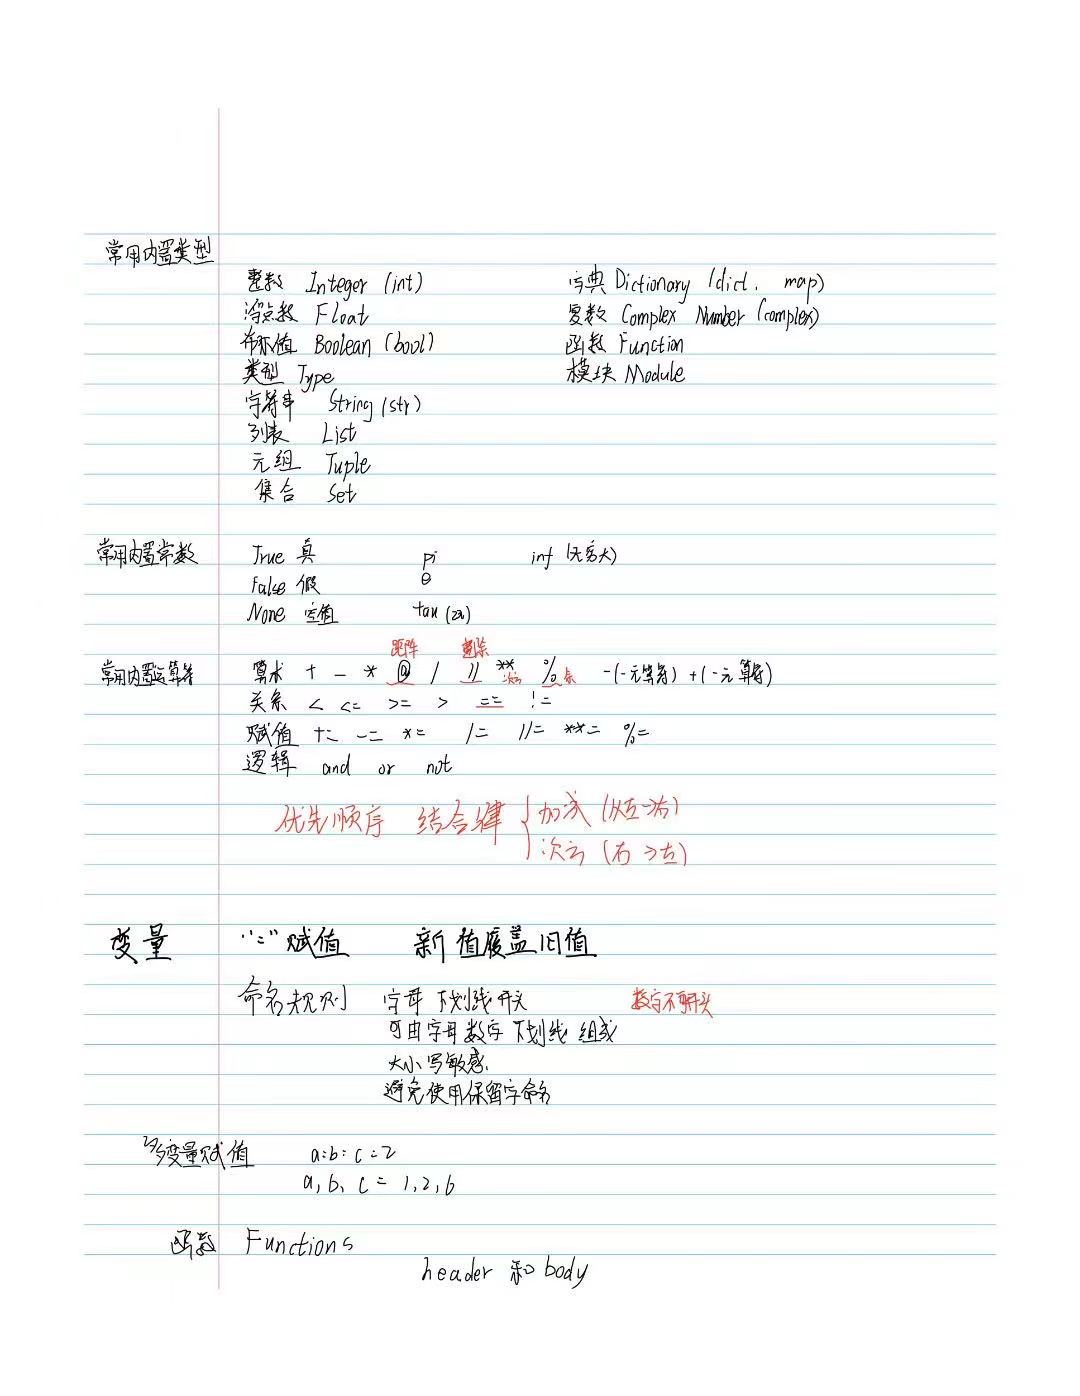 常用内置类型
整数 Integer (int) 字典 Dictionary (dict. map)
浮点数 Float 复数 Complex Number (complex)
布尔值 Boolean (bool) 函数 Function
类型 Type 模块 Module
字符串 String (str)
列表 List
元组 Tuple
集合 Set
常用内置常数 True 真 pi inf (无穷大)
False 假 e
None 空值 tau (2π)
矩阵 整除
常用内置运算符 算术 + - * @ / // ** % -(一元算符) +(一元算符)
关系 < <= >= > == !=
赋值 += -= *= /= //= **= %=
逻辑 and or not
优先顺序 结合律 { 加减 (从左→右)
次方 (右->左)
变量 "=" 赋值 新值覆盖旧值
命名规则 字母 下划线开头 数字不可开头
可由字母数字下划线 组成
大小写敏感.
避免使用保留字命名
多变量赋值 a=b=c=2
a, b, c = 1,2,6
函数 Functions
header 和 body